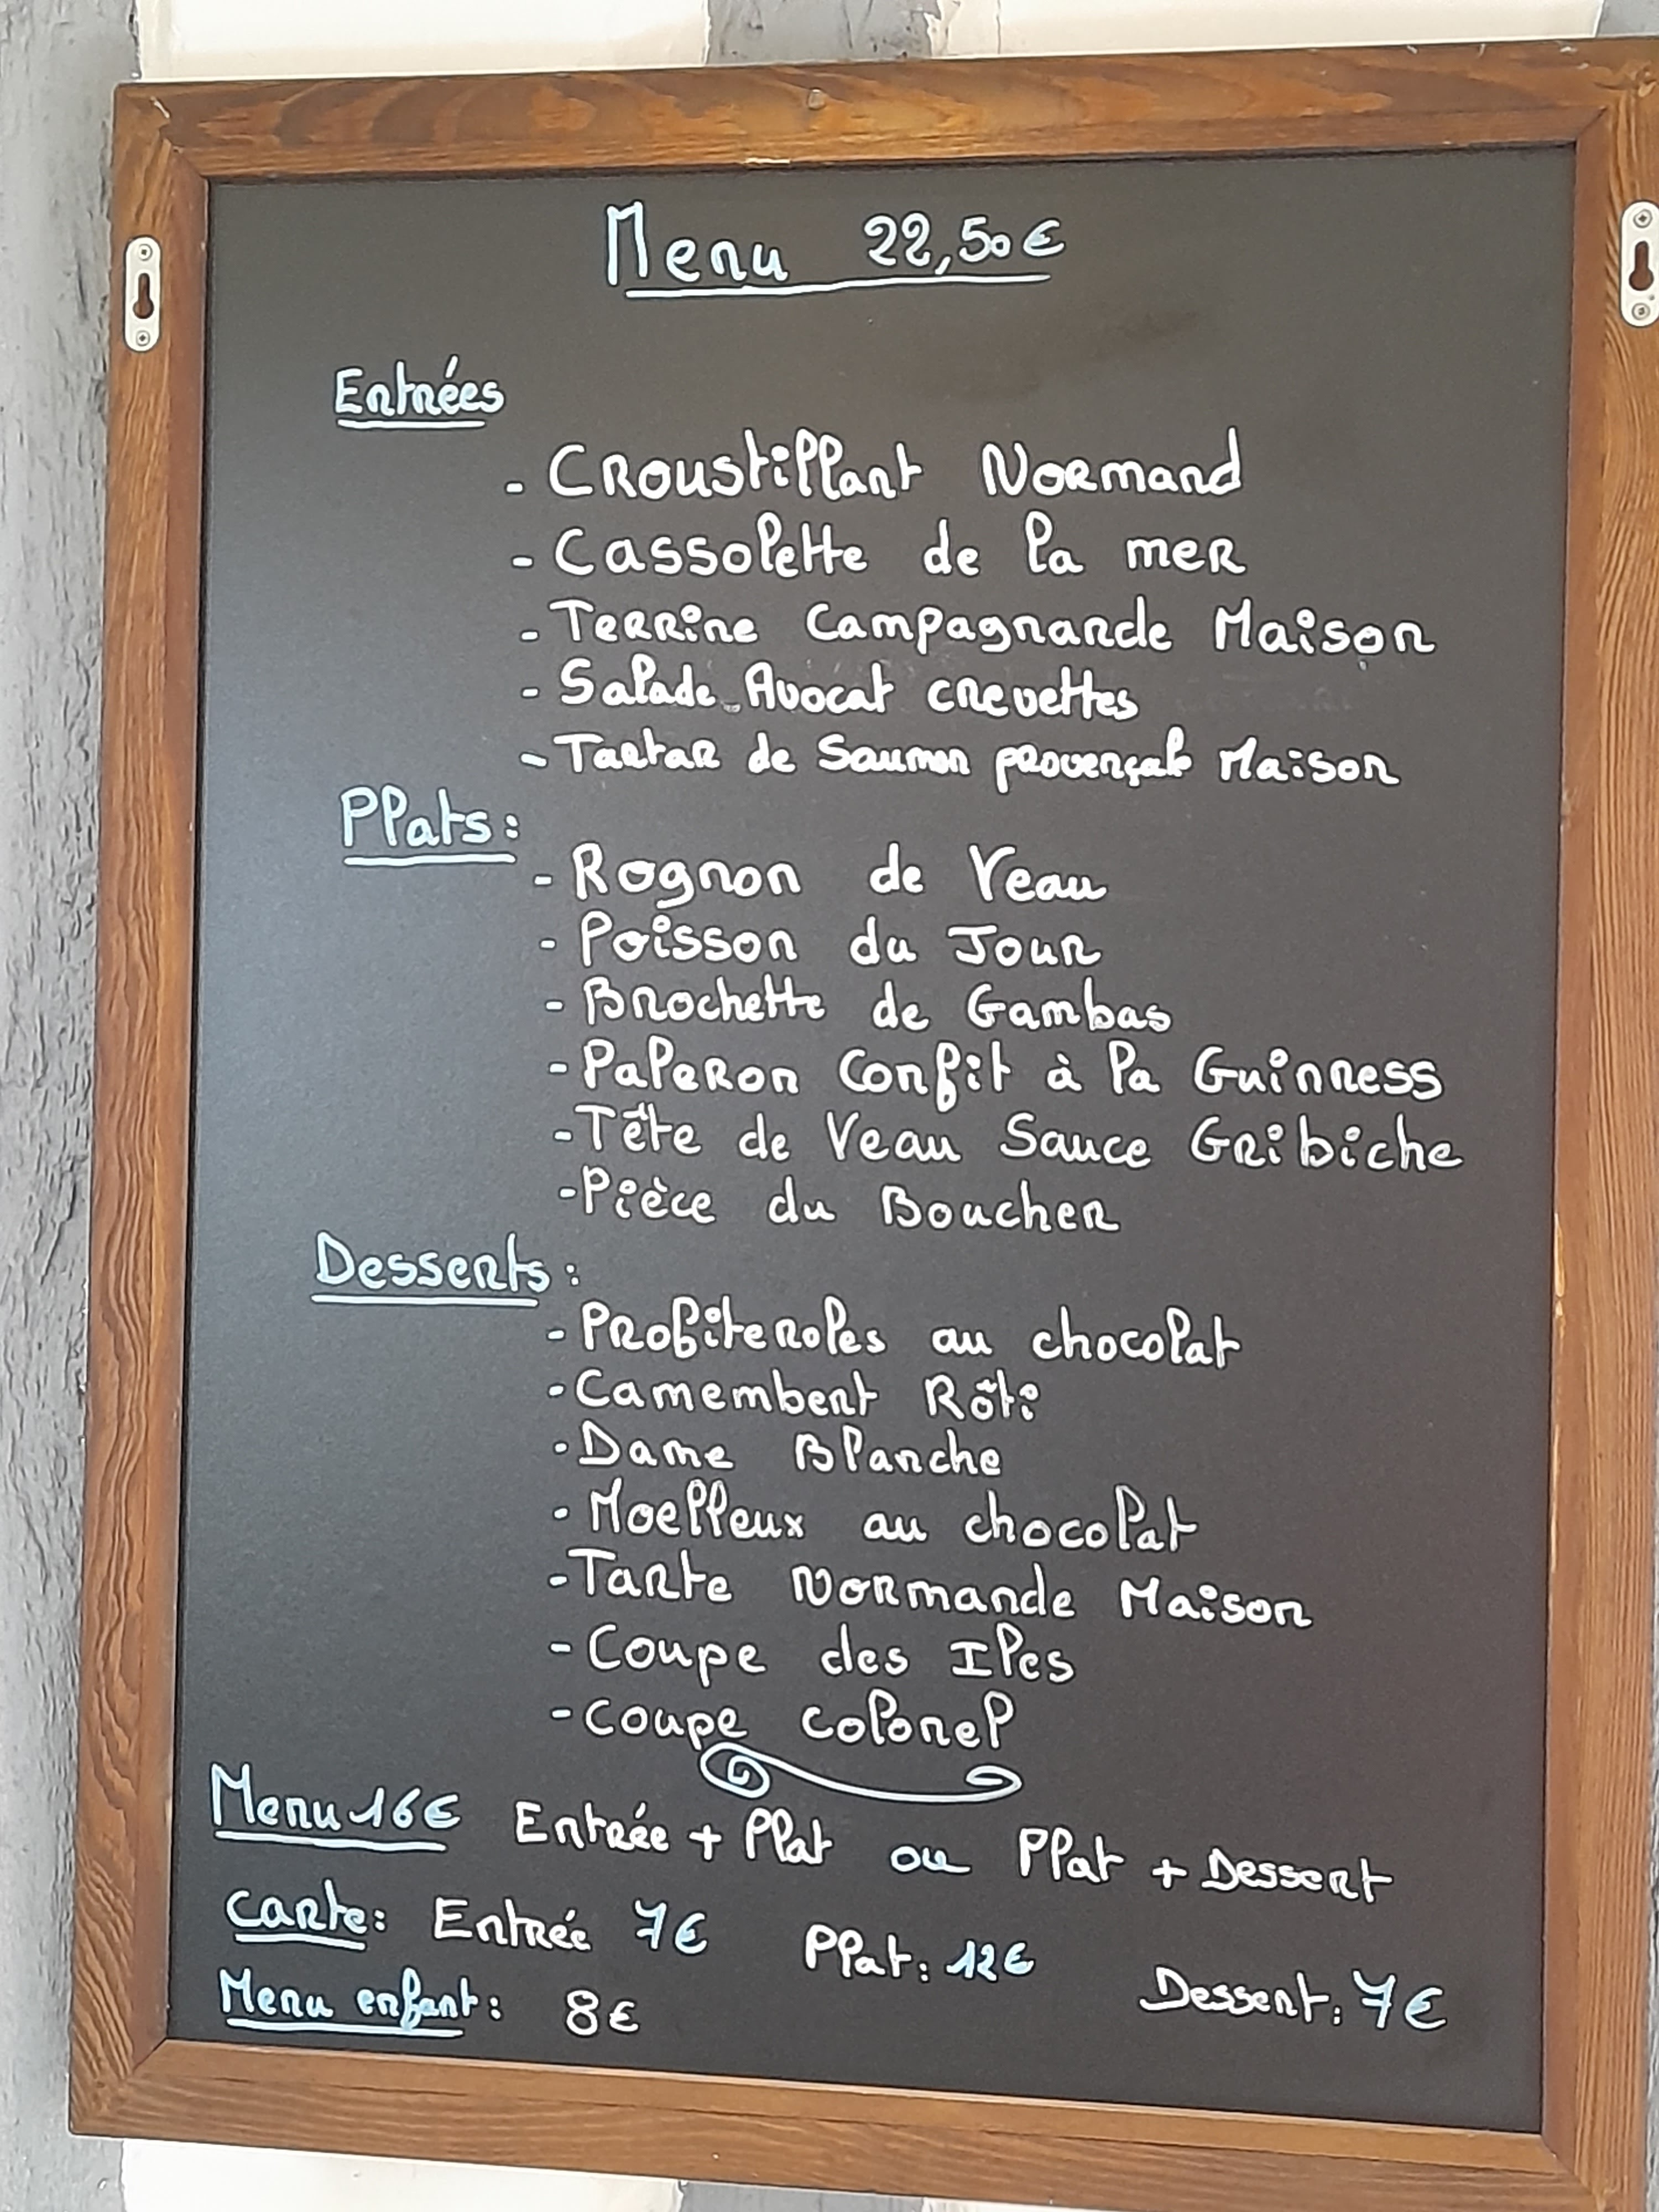 Menu 22,50€
Entrées
- Croustillant Normand
- Cassolette de la mer
- Terrine Campagnarde Maison
- Salade Avocat crevettes
- Tartar de Saumon provençale Maison
Plats :
- Rognon de Veau
- Poisson du Jour
- Brochette de Gambas
- Paleron Confit à la Guinness
- Tête de Veau Sauce Gribiche
- Pièce du Boucher
Desserts :
- Profiteroles au chocolat
- Camembert Rôti
- Dame Blanche
- Moelleux au chocolat
- Tarte Normande Maison
- Coupe des Iles
- Coupe colonel
Menu 16€ Entrée + Plat ou Plat + Dessert
Carte : Entrée 7€ Plat : 12€ Dessert : 7€
Menu enfant : 8€